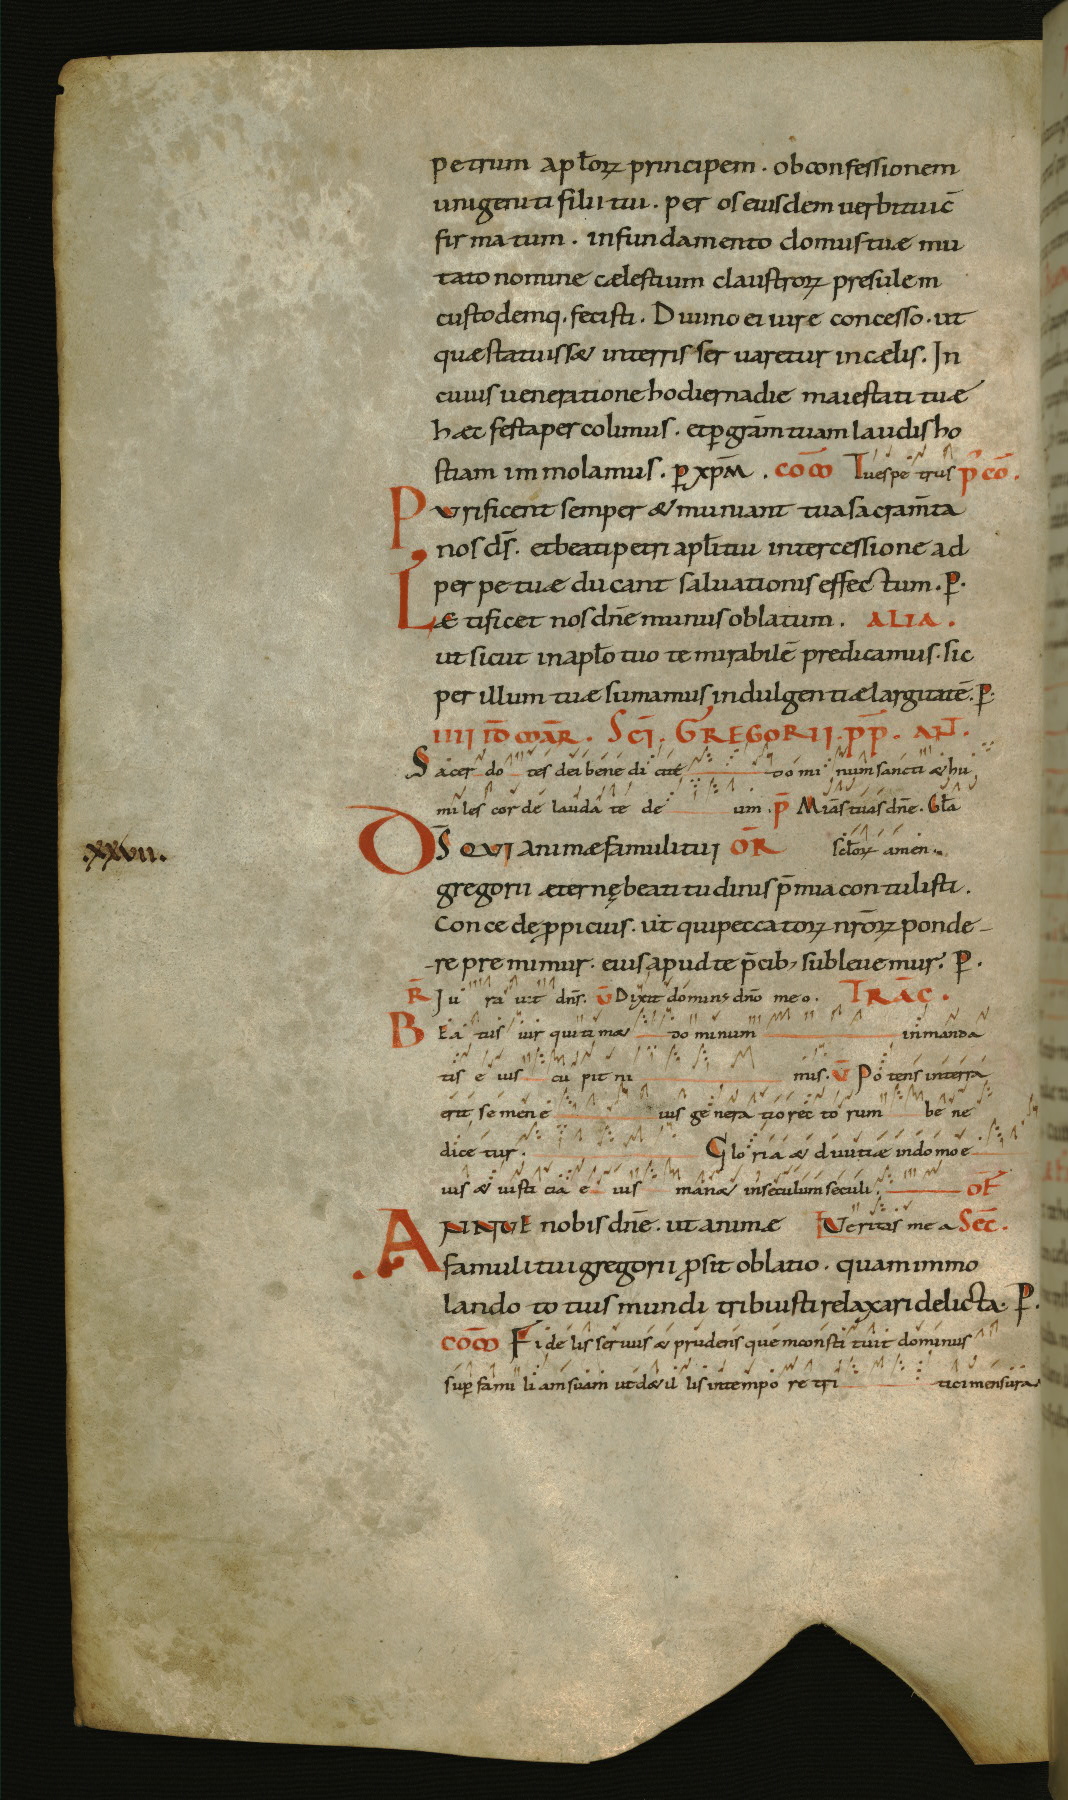 petrum apłorꝝ principem . obconfessionem
unigeniti filii tui . per os eiusdem uerbi tui c̄
firmatum . infundamento domus tuæ mu
tato nomine cælestium claustrorꝝ presulem
custodemq. fecisti . Diuino ei iure concesso . ut
quæ statuiss& interris seruaretur in cælis . In
cuius ueneratione hodierna die maiestati tuæ
hæc festa percolimus . et ꝑ gr̄am tuam laudis ho
stiam immolamus . ꝑ xp̄m . com̄ Tu es petrus p̄ cō .
Purificent semper & muniant tua sacram̄ta
nos d̄s . et beati petri apłi tui intercessione ad
perpetuæ ducant saluationis effectum . P .
Lætificet nos dn̄e munus oblatum . ALIA .
ut sicut in apło tuo te mirabilē predicamus . sic
per illum tuæ sumamus indulgentiæ largitatē . P .
IIII ID̄ MAR̄ . SCĪ . GREGORII . PP̄ . AN̄T .
Sacerdotes dei benedicite dominum sancti & hu
miles corde laudate deum . p̄ Miās tuas dn̄e . Gła
D̄S QVI animæ famuli tui OR̄ sclorꝝ amen .
.xxvii.
gregorii æternę beatitudinis p̄mia contulisti .
Concede ꝓpicius . ut qui peccatorꝝ nr̄orꝝ ponde-
-re premimur . eius apud te p̄cib; subleuemur . P .
R̄ Iurauit dn̄s . V̄ Dixit dominus dn̄o meo . TRĀC .
Beatus uir qui tim& dominum in manda
tis eius cupit nimis . V̄ Potens in terra
erit semen eius generatio rectorum bene
dicetur . Gloria & diuitiæ in domo e
ius & iusticia eius man& in seculum seculi . OF̄
ANNVE nobis dn̄e . ut animæ Veritas mea SEC̄ .
famuli tui gregorii ꝓsit oblatio . quam immo
lando totius mundi tribuisti relaxari delicta . P .
COM̄ Fidelis seruus & prudens quem constituit dominus
sup̄ familiam suam ut d& illis in tempore tritici mensura